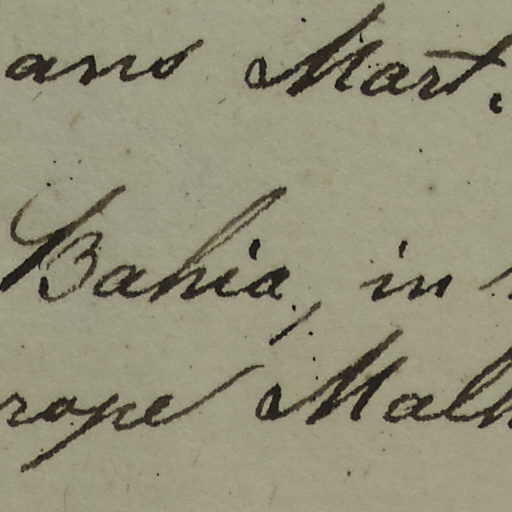 ano Mart.
Bahia, in
rope Malh